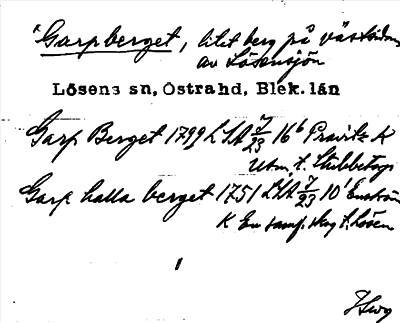 "Garpberget, litet berg på västsidan
av Lösensjön
Lösens sn, Östra hd, Blek. län
Garp Berget 1799 LSA 7/23 16b Pravits K
Utm. t. Stubbetorp
Garp halla berget 1751 LSA 7/23 10' Enström
K En samf. skog t. Lösen
1